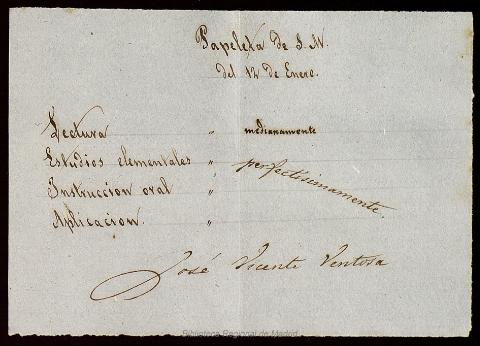 Papeleta de S. M.
del 12 de Enero.
Lectura " medianamente
Estudios elementales " perfectisimamente
Instruccion oral "
Aplicacion. "
José Vicente Ventosa
Biblioteca Regional de Madrid